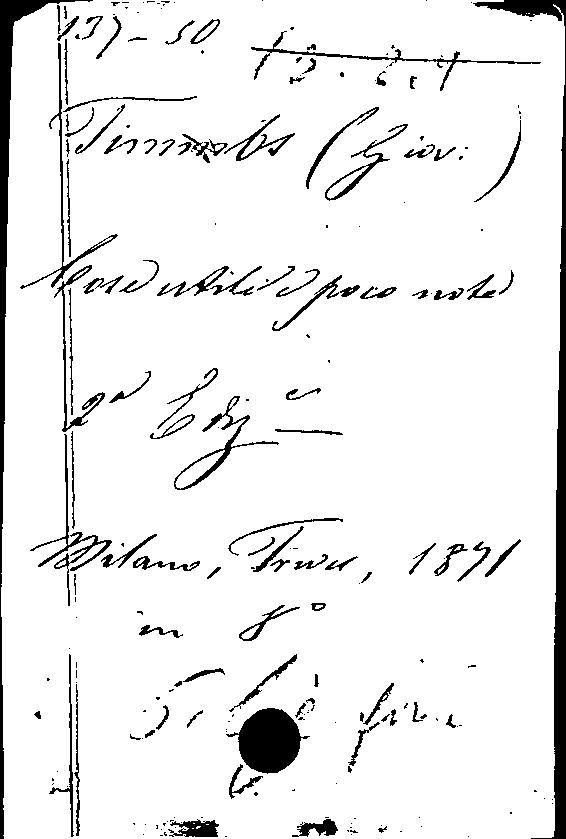 137-50.
13.2.4
Timmbs (Giov:)
Cose utili e poco note
2ª Edizᵉ
Milano, Treves, 1871
in 8°